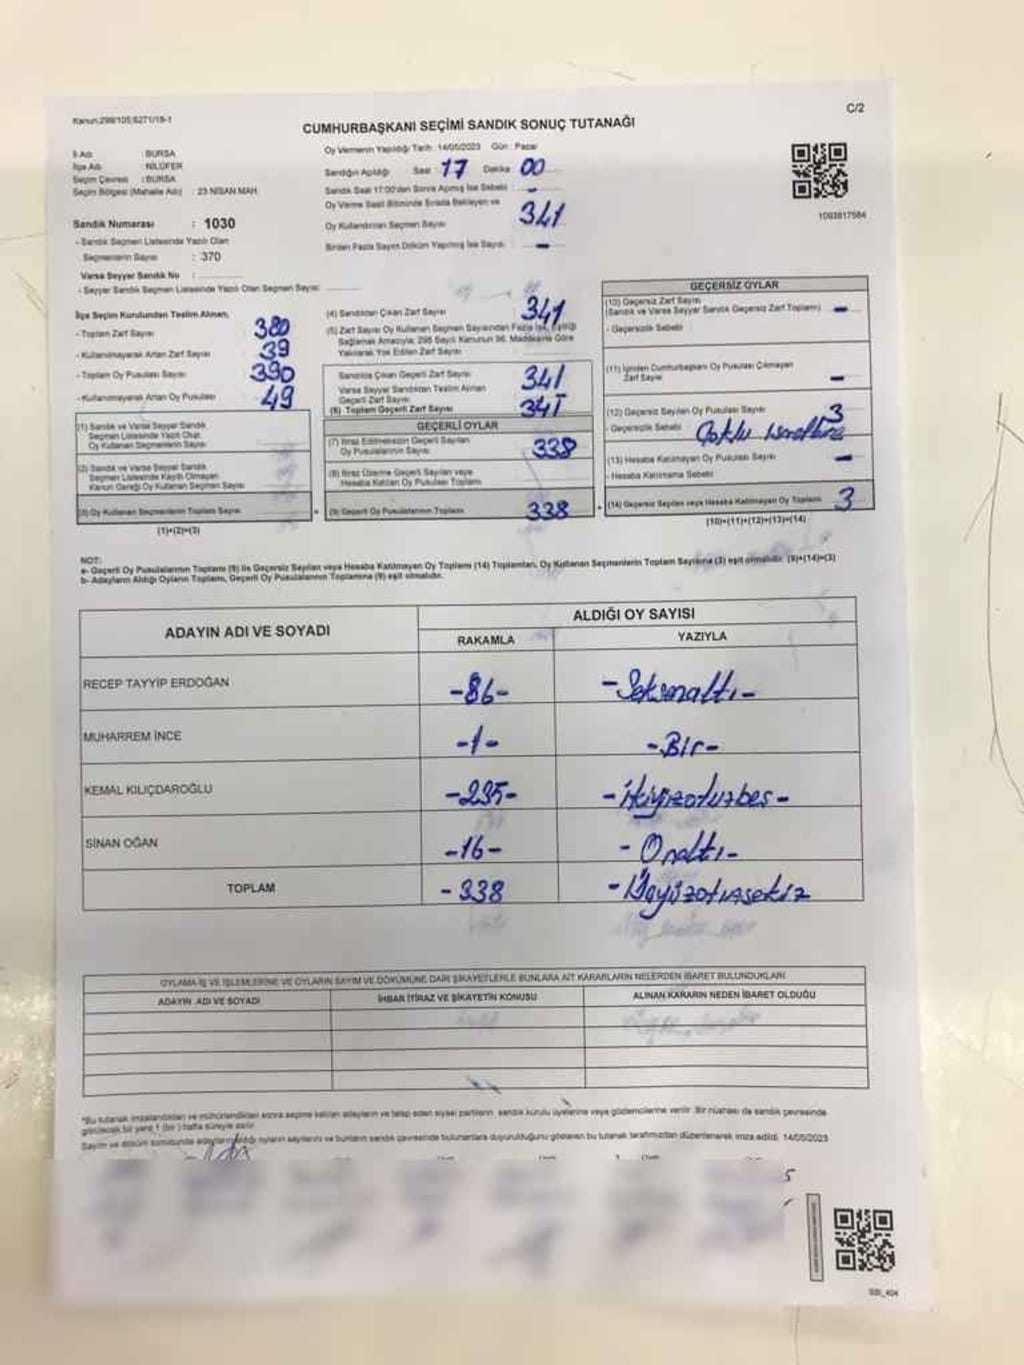 Kanun:298/105;6271/18-1
C/2
CUMHURBAŞKANI SEÇİMİ SANDIK SONUÇ TUTANAĞI
İl Adı : BURSA
İlçe Adı : NİLÜFER
Seçim Çevresi : BURSA
Seçim Bölgesi (Mahalle Adı) : 23 NİSAN MAH.
Sandık Numarası : 1030
- Sandık Seçmen Listesinde Yazılı Olan
Seçmenlerin Sayısı : 370
Varsa Seyyar Sandık No :
- Seyyar Sandık Seçmen Listesinde Yazılı Olan Seçmen Sayısı
Oy Vermenin Yapıldığı Tarih : 14/05/2023 Gün : Pazar
Sandığın Açıldığı Saat : 17 Dakika 00
Sandık Saat 17:00'den Sonra Açılmış İse Sebebi : -
Oy Verme Saati Bitiminde Sırada Bekleyen ve
Oy Kullandırılan Seçmen Sayısı : 341
Birden Fazla Sayım Döküm Yapılmış İse Sayısı : -
1093817584
İlçe Seçim Kurulundan Teslim Alınan;
- Toplam Zarf Sayısı 380
- Kullanılmayarak Artan Zarf Sayısı 39
- Toplam Oy Pusulası Sayısı 390
- Kullanılmayarak Artan Oy Pusulası 49
(1) Sandık ve Varsa Seyyar Sandık
Seçmen Listesinde Yazılı Olup
Oy Kullanan Seçmenlerin Sayısı
(2) Sandık ve Varsa Seyyar Sandık
Seçmen Listesinde Kayıtlı Olmayan
Kanun Gereği Oy Kullanan Seçmen Sayısı
(3) Oy Kullanan Seçmenlerin Toplam Sayısı
(1)+(2)=(3)
(4) Sandıktan Çıkan Zarf Sayısı 341
(5) Zarf Sayısı Oy Kullanan Seçmen Sayısından Fazla İse, Eşitliği
Sağlamak Amacıyla; 298 Sayılı Kanunun 98. Maddesine Göre
Yakılarak Yok Edilen Zarf Sayısı
Sandıkta Çıkan Geçerli Zarf Sayısı 341
Varsa Seyyar Sandıktan Teslim Alınan
Geçerli Zarf Sayısı
(6) Toplam Geçerli Zarf Sayısı 341
GEÇERLİ OYLAR
(7) İtiraz Edilmeksizin Geçerli Sayılan
Oy Pusulalarının Sayısı 338
(8) İtiraz Üzerine Geçerli Sayılan veya
Hesaba Katılan Oy Pusulası Toplamı
(9) Geçerli Oy Pusulalarının Toplamı 338
GEÇERSİZ OYLAR
(10) Geçersiz Zarf Sayısı
(Sandık ve Varsa Seyyar Sandık Geçersiz Zarf Toplamı) -
- Geçersizlik Sebebi
(11) İçinden Cumhurbaşkanı Oy Pusulası Çıkmayan
Zarf Sayısı -
(12) Geçersiz Sayılan Oy Pusulası Sayısı 3
- Geçersizlik Sebebi Çoklu
(13) Hesaba Katılmayan Oy Pusulası Sayısı -
- Hesaba Katılmama Sebebi
(14) Geçersiz Sayılan veya Hesaba Katılmayan Oy Toplamı 3
(10)+(11)+(12)+(13)=(14)
NOT:
a- Geçerli Oy Pusulalarının Toplamı (9) ile Geçersiz Sayılan veya Hesaba Katılmayan Oy Toplamı (14) Toplamları, Oy Kullanan Seçmenlerin Toplam Sayısına (3) eşit olmalıdır. (9)+(14)=(3)
b- Adayların Aldığı Oyların Toplamı, Geçerli Oy Pusulalarının Toplamına (9) eşit olmalıdır.
ADAYIN ADI VE SOYADI
ALDIĞI OY SAYISI
RAKAMLA
YAZIYLA
RECEP TAYYİP ERDOĞAN -86- -Seksenaltı-
MUHARREM İNCE -1- -Bir-
KEMAL KILIÇDAROĞLU -235- -İkiyüzotuzbeş-
SİNAN OĞAN -16- -Onaltı-
TOPLAM -338 -Üçyüzotuzsekiz
OYLAMA İŞ VE İŞLEMLERİNE VE OYLARIN SAYIM VE DÖKÜMÜNE DAİR ŞİKAYETLERLE BUNLARA AİT KARARLARIN NELERDEN İBARET BULUNDUKLARI
ADAYIN ADI VE SOYADI
İHBAR İTİRAZ VE ŞİKAYETİN KONUSU
ALINAN KARARIN NEDEN İBARET OLDUĞU
*Bu tutanak imzalandıktan ve mühürlendikten sonra seçime katılan adayların ve talep eden siyasi partilerin, sandık kurulu üyelerine veya gözlemcilerine verilir. Bir nüshası da sandık çevresinde
görülecek bir yere 1 (bir) hafta süreyle asılır.
Sayım ve döküm sonucunda adayların aldığı oyların sayılarını ve bunların sandık çevresinde bulunanlara duyurulduğunu gösteren bu tutanak tarafımızdan düzenlenerek imza edildi. 14/05/2023
SSI_404